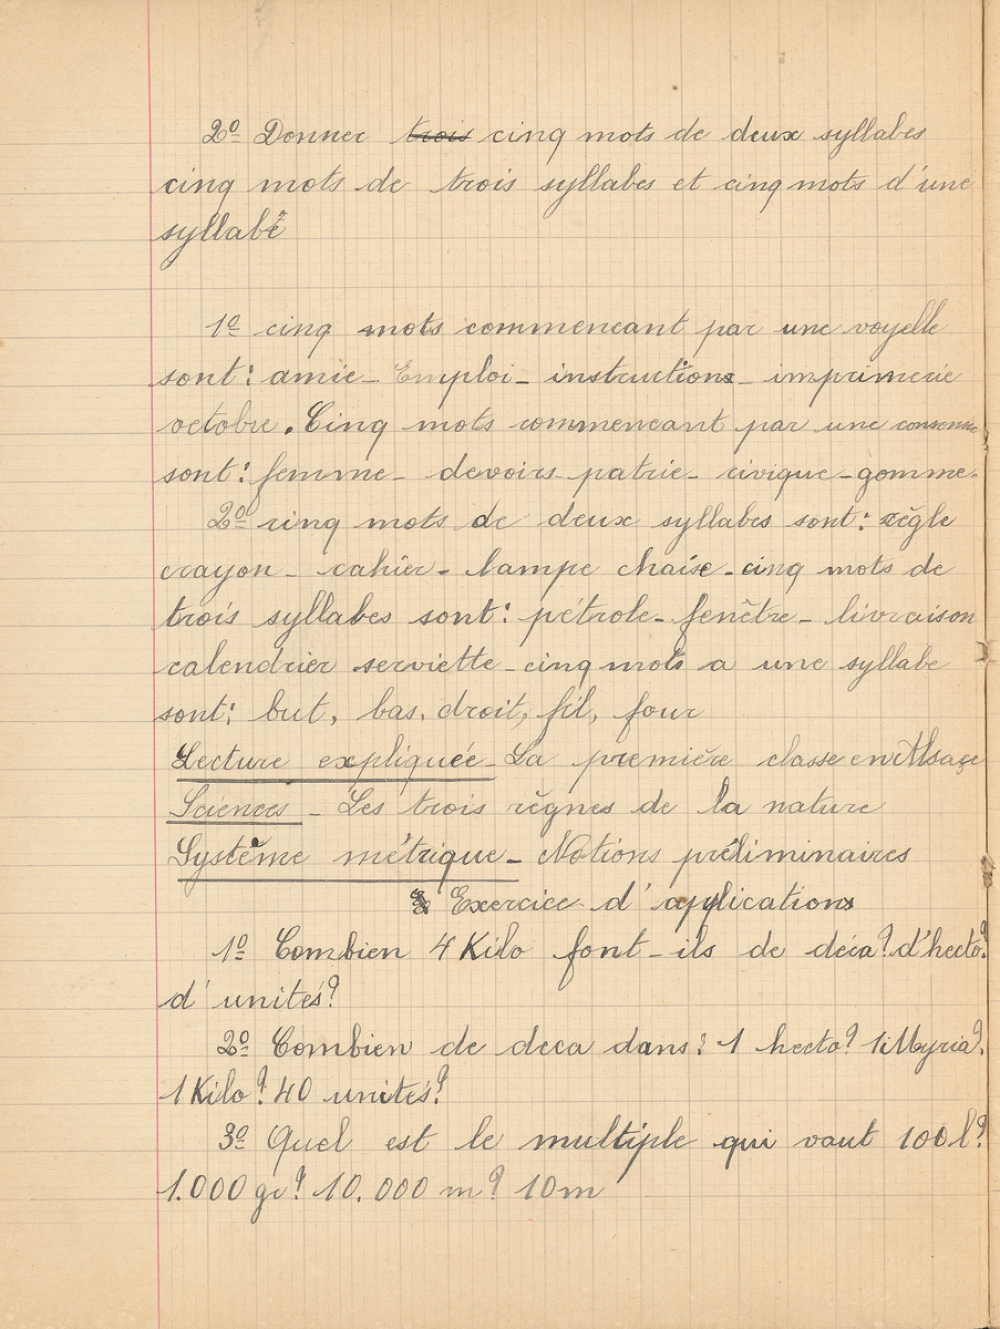 2º Donner ~~trois~~ cinq mots de deux syllabes
cinq mots de trois syllabes et cinq mots d'une
syllabe
1º cinq mots commencant par une voyelle
sont : amie - Emploi - instructions - imprimerie
octobre. Cinq mots commencant par une consonne
sont : femme - devoirs - patrie - civique - gomme -
2º cinq mots de deux syllabes sont : règle
crayon - cahier - lampe chaise - cinq mots de
trois syllabes sont : pétrole - fenêtre - livraison
calendrier serviette - cinq mots a une syllabe
sont : but, bas, droit, fil, four
Lecture expliquée - La première classe en Alsace
Sciences - Les trois règnes de la nature
Système métrique - Notions préliminaires
Exercice d'applications
1º Combien 4 Kilo font-ils de déca ? d'hecto ?
d'unités ?
2º Combien de deca dans : 1 hecto ? 1 Myria ?
1 Kilo ? 40 unités ?
3º Quel est le multiple qui vaut 100 l ?
1.000 gr ? 10.000 m ? 10 m